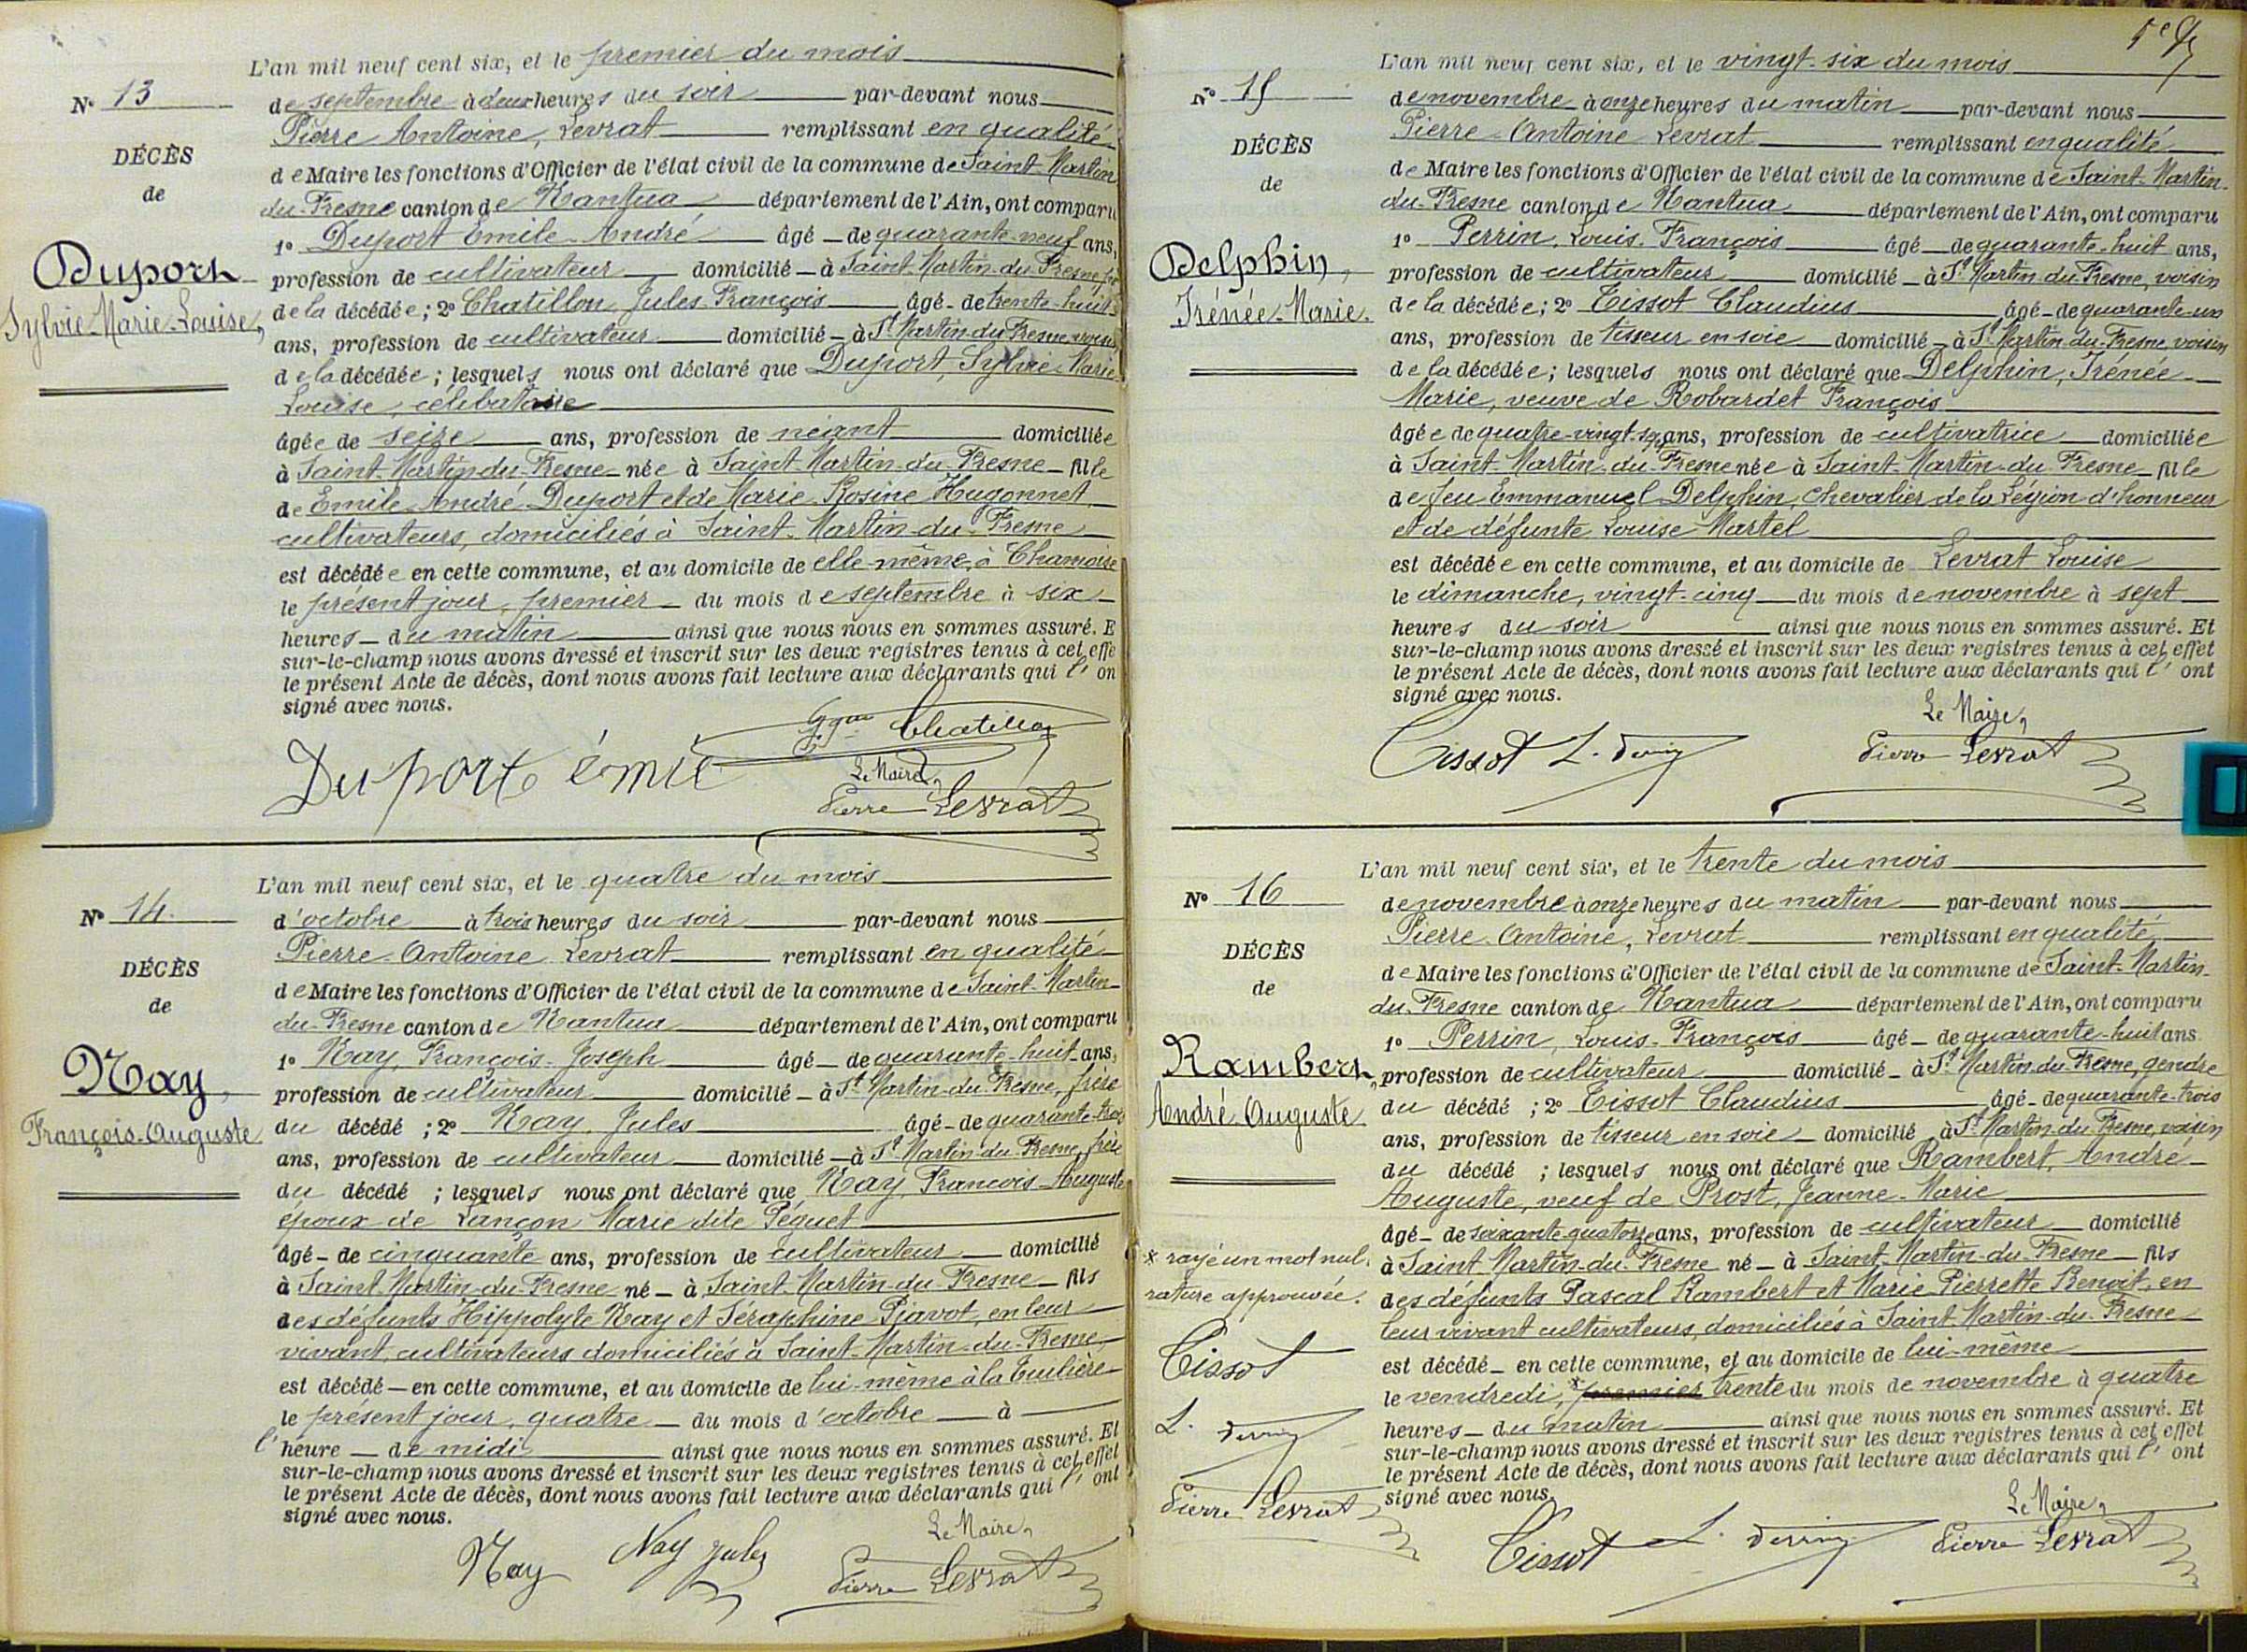 N° 13
DÉCÈS
de
Duport
Sylvie-Marie-Louise,
L'an mil neuf cent six, et le premier du mois
de septembre à deux heures du soir par-devant nous
Pierre Antoine, Levrat remplissant en qualité
de Maire les fonctions d'Officier de l'état civil de la commune de Saint-Martin
du-Fresne canton de Nantua département de l'Ain, ont comparu
1° Duport Emile-André âgé de quarante-neuf ans,
profession de cultivateur domicilié à Saint-Martin-du-Fresne,
de la décédée; 2° Chatillon Jules François âgé de trente-huit
ans, profession de cultivateur domicilié à St Martin-du-Fresne voisin
de la décédée; lesquels nous ont déclaré que Duport, Sylvie-Marie-
Louise, célibataire
âgée de seize ans, profession de néant domiciliée
à Saint-Martin-du-Fresne née à Saint-Martin-du-Fresne fille
de Emile-André Duport et de Marie Rosine Hugonnet
cultivateurs, domiciliés à Saint-Martin-du-Fresne
est décédée en cette commune, et au domicile de elle-même, à Chamoise
le présent jour, premier du mois de septembre à six
heures du matin ainsi que nous nous en sommes assuré. E
sur-le-champ nous avons dressé et inscrit sur les deux registres tenus à cet effe
le présent Acte de décès, dont nous avons fait lecture aux déclarants qui l'on
signé avec nous.
Chatillon
Duport émile
Le Maire,
Pierre Levrat
N° 14
DÉCÈS
de
Nay,
François-Auguste
L'an mil neuf cent six, et le quatre du mois
d'octobre à trois heures du soir par-devant nous
Pierre-Antoine Levrat remplissant en qualité
de Maire les fonctions d'Officier de l'état civil de la commune de Saint-Martin-
du-Fresne canton de Nantua département de l'Ain, ont comparu
1° Nay, François-Joseph âgé de quarante-huit ans,
profession de cultivateur domicilié à St Martin-du-Fresne, frère
du décédé; 2° Nay, Jules âgé de quarante-trois
ans, profession de cultivateur domicilié à St Martin-du-Fresne, frère
du décédé; lesquels nous ont déclaré que Nay, François-Auguste
époux de Lançon Marie dite Péguet
âgé de cinquante ans, profession de cultivateur domicilié
à Saint-Martin-du-Fresne né à Saint-Martin-du-Fresne fils
des défunts Hippolyte Nay et Séraphine Piavot, en leur
vivant, cultivateurs domiciliés à Saint-Martin-du-Fresne,
est décédé en cette commune, et au domicile de lui-même à la
le présent jour, quatre du mois d'octobre à
l'heure de midi ainsi que nous nous en sommes assuré. Et
sur-le-champ nous avons dressé et inscrit sur les deux registres tenus à cet effet
le présent Acte de décès, dont nous avons fait lecture aux déclarants qui l'ont
signé avec nous.
Nay Nay Jules
Le Maire,
Pierre Levrat
N° 15
DÉCÈS
de
Delphin,
Irénée-Marie.
L'an mil neuf cent six, et le vingt-six du mois
de novembre à onze heures du matin par-devant nous
Pierre-Antoine Levrat remplissant en qualité
de Maire les fonctions d'Officier de l'état civil de la commune de Saint-Martin-
du-Fresne canton de Nantua département de l'Ain, ont comparu
1° Perrin, Louis-François âgé de quarante-huit ans,
profession de cultivateur domicilié à St Martin-du-Fresne, voisin
de la décédée; 2° Tissot Claudius âgé de quarante-un
ans, profession de tisseur en soie domicilié à St Martin-du-Fresne, voisin
de la décédée; lesquels nous ont déclaré que Delphin, Irénée
Marie, veuve de Robardet François
âgée de quatre-vingt-sept ans, profession de cultivatrice domiciliée
à Saint-Martin-du-Fresne née à Saint-Martin-du-Fresne fille
de feu Emmanuel Delphin, Chevalier de la Légion d'honneur
et de défunte Louise Martel
est décédée en cette commune, et au domicile de Levrat Louise
le dimanche, vingt-cinq du mois de novembre à sept
heures du soir ainsi que nous nous en sommes assuré. Et
sur-le-champ nous avons dressé et inscrit sur les deux registres tenus à cet effet
le présent Acte de décès, dont nous avons fait lecture aux déclarants qui l'ont
signé avec nous.
Le Maire,
Tissot L. Perrin Pierre Levrat
N° 16
DÉCÈS
de
Rambert,
André-Auguste
L'an mil neuf cent six, et le trente du mois
de novembre à onze heures du matin par-devant nous
Pierre-Antoine, Levrat remplissant en qualité
de Maire les fonctions d'Officier de l'état civil de la commune de Saint-Martin-
du-Fresne canton de Nantua département de l'Ain, ont comparu
1° Perrin, Louis-François âgé de quarante-huit ans
profession de cultivateur domicilié à St Martin-du-Fresne, gendre
du décédé; 2° Tissot Claudius âgé de quarante-trois
ans, profession de tisseur en soie domicilié à St Martin-du-Fresne, voisin
du décédé; lesquels nous ont déclaré que Rambert, André-
Auguste, veuf de Prost, Jeanne-Marie
âgé de soixante-quatorze ans, profession de cultivateur domicilié
à Saint-Martin-du-Fresne né à Saint-Martin-du-Fresne fils
des défunts Pascal Rambert et Marie Pierrette Benoit, en
leur vivant cultivateurs, domiciliés à Saint-Martin-du-Fresne
est décédé en cette commune, et au domicile de lui-même
le vendredi, * premier trente du mois de novembre à quatre
heures du matin ainsi que nous nous en sommes assuré. Et
sur-le-champ nous avons dressé et inscrit sur les deux registres tenus à cet effet
le présent Acte de décès, dont nous avons fait lecture aux déclarants qui l'ont
signé avec nous.
* rayé un mot nul.
rature approuvée.
Tissot
L. Perrin
Pierre Levrat
Le Maire,
Tissot L. Perrin Pierre Levrat